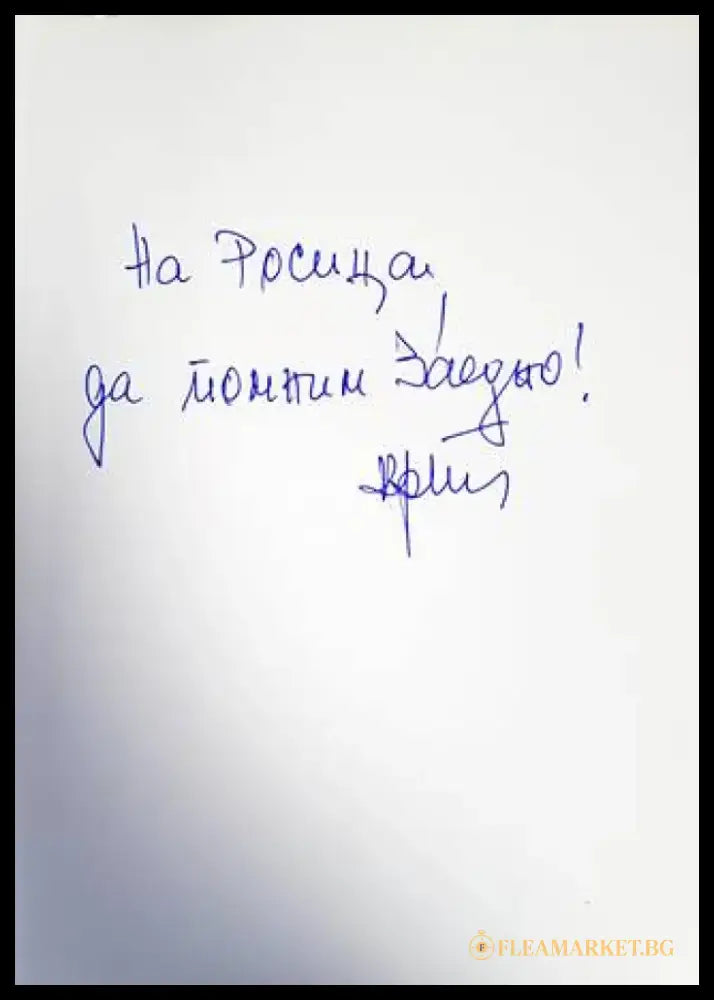 На Росица,
да помним заедно!
FLEAMARKET.BG